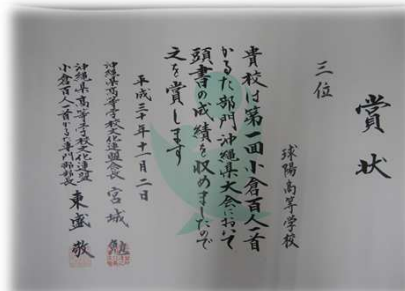 賞状
三位
球陽高等学校
貴校は第一回小倉百人一首
かるた部門沖縄県大会において
頭書の成績を収めましたので
之を賞します
平成三十年十一月二日
沖縄県高等学校文化連盟会長 宮城
沖縄県高等学校文化連盟
小倉百人一首かるた専門部部長 東盛 敬